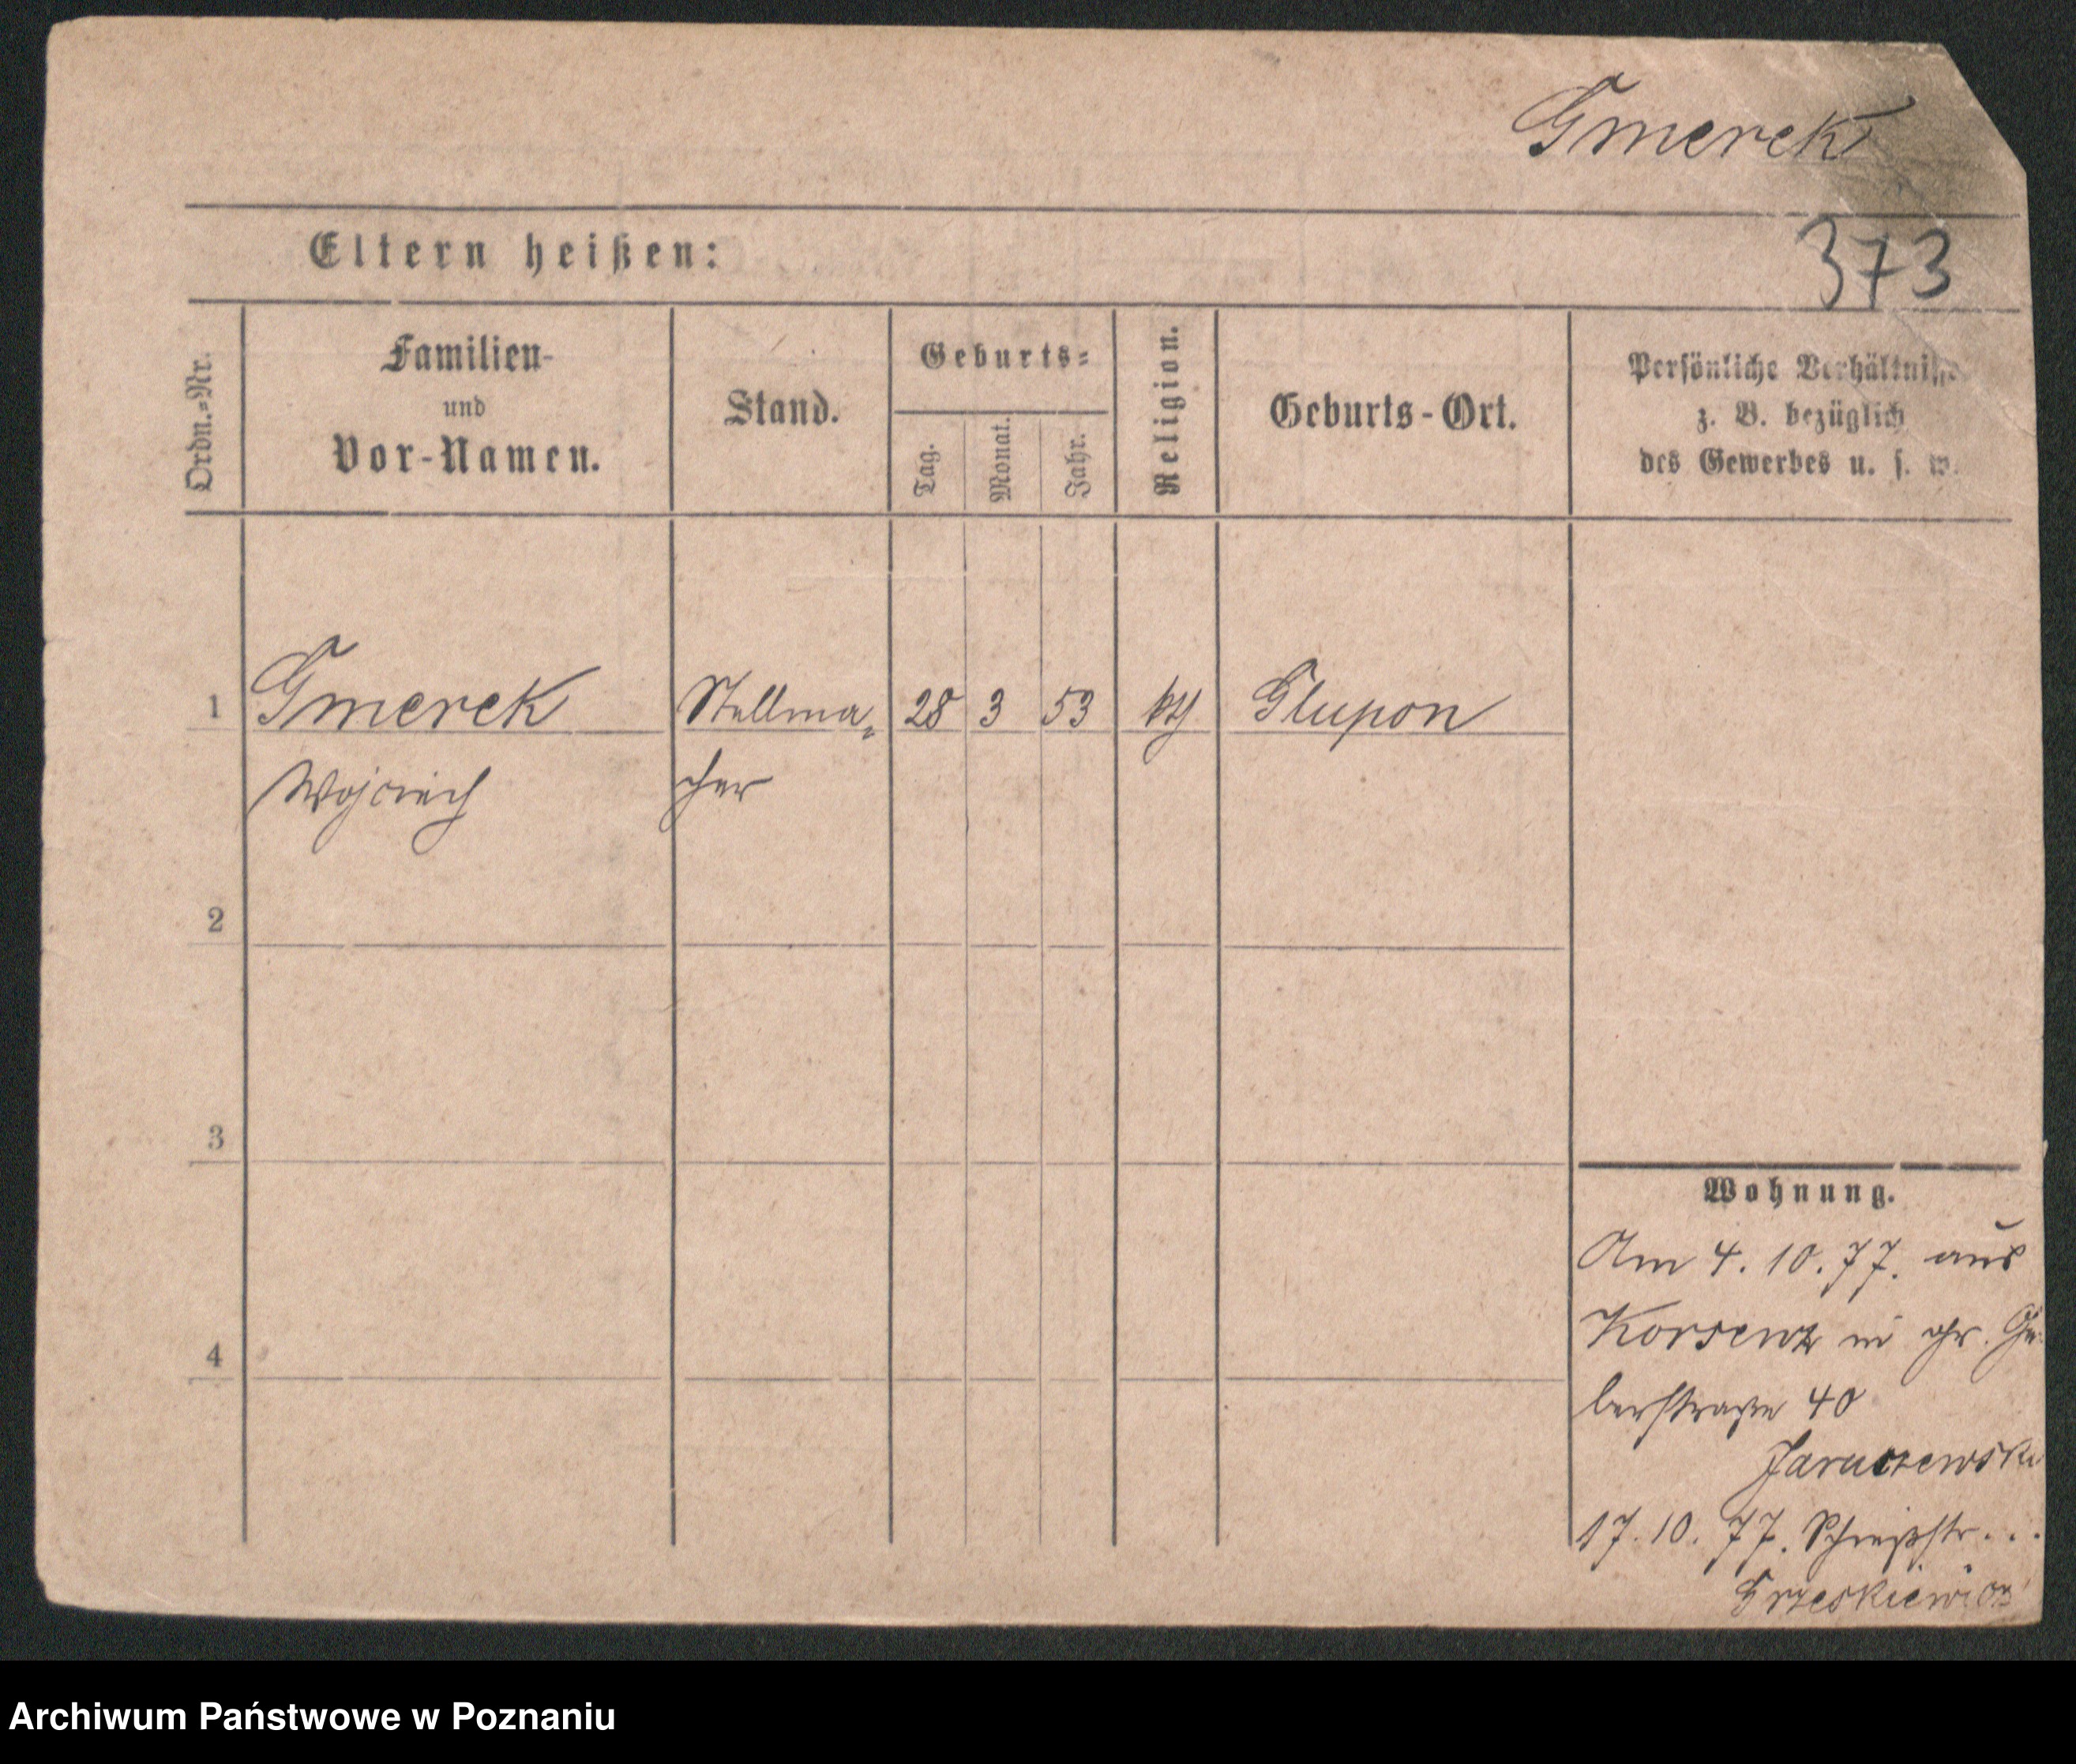 Gmerek
Eltern heißen:
373
Ordn.-Nr.
Familien-
und
Vor-Namen.
Stand.
Geburts-
Tag.
Monat.
Jahr.
Religion.
Geburts-Ort.
Persönliche Verhältnisse
z. B. bezüglich
des Gewerbes u. s. w.
1 Gmerek Stellma= 28 3 53 kth Glupon
Wojciech cher
2
3
4
Wohnung.
Am 4. 10. 77. aus
Korsenz in gr. Ge-
berstraße 40
Jaruczewski
17. 10. 77. Schießstr...
Grzeskiewicz
Archiwum Państwowe w Poznaniu